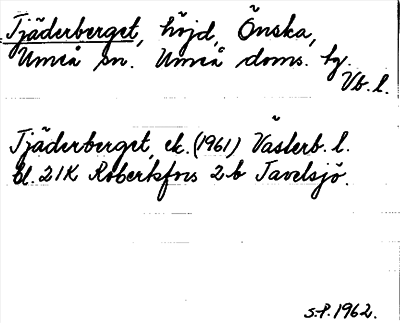 Tjäderberget, höjd, Önska,
Umeå sn. Umeå doms. hg.
Vb. l.
Tjäderberget, ek. (1961) Västerb. l.
bl. 21K Robertsfors 2b Tavelsjö.
S.P. 1962.